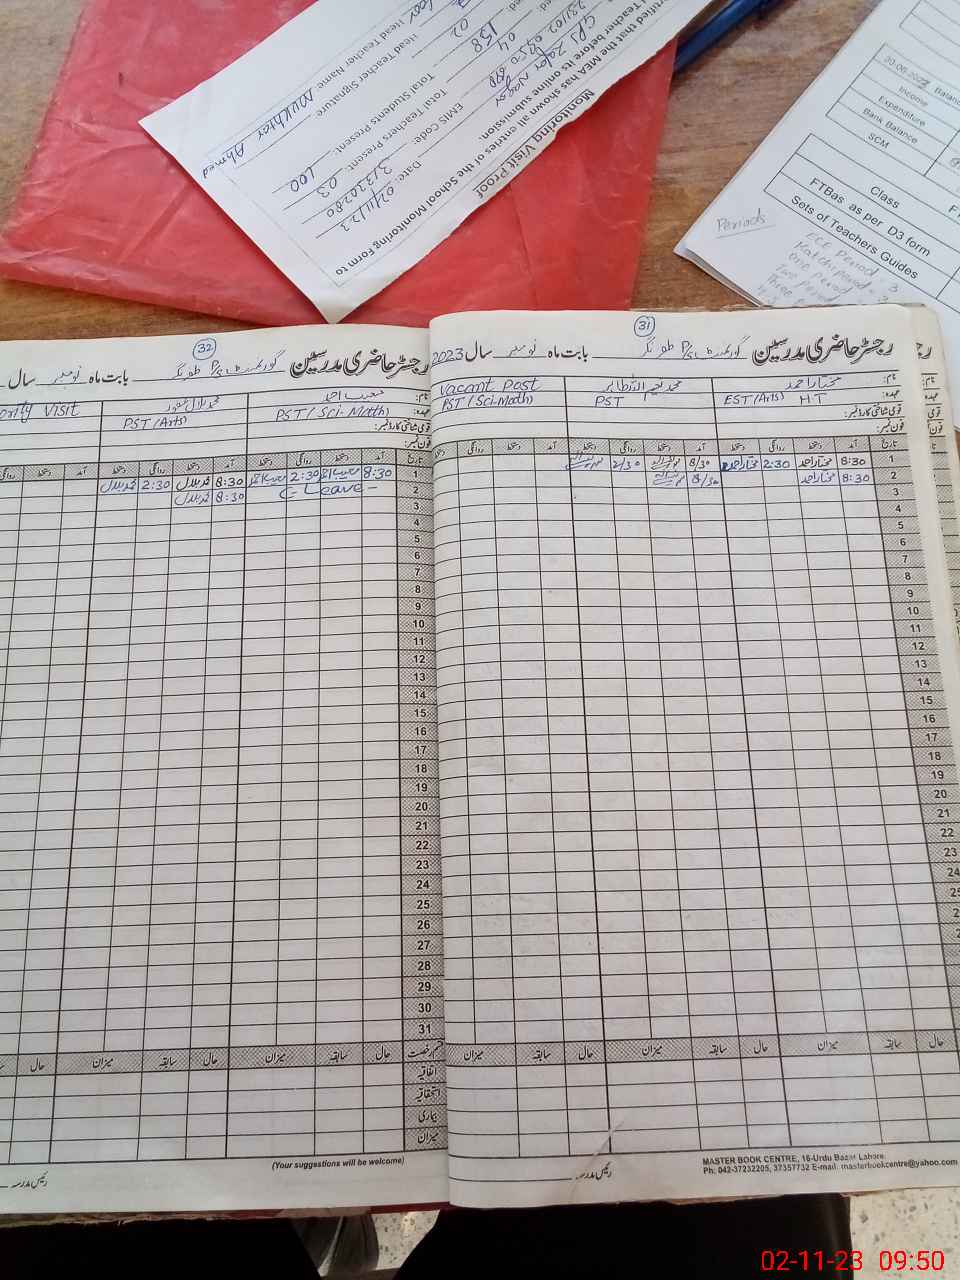 Monitoring Visit Proof
ertified that the MEA has shown all entries of the School Monitoring Form to
Teacher before its online submission.
Date: 02/11/23
EMIS Code: 31320280
Total Teachers Present: 03 04
Total Students Present: 100 158
Head Teacher Signature
Head Teacher Name Mukhtar Ahmed
30-06-2023 Balanc
Income
Expenditure
Bank Balance
SCM
Class
FTBas as per D3 form
Sets of Teachers Guides
Periods
ECE Period
Katchi period - 3
One period
Two period
Three
31
رجسٹر حاضری مدرسین گورنمنٹ P/S بابت ماہ نومبر سال 2023
نام: مختار احمد
Vacant Post
عہدہ: EST (Arts) HT
PST
PST (Sci-Math)
قومی شناختی کارڈ نمبر:
فون نمبر:
تاریخ آمد دستخط روانگی دستخط آمد دستخط روانگی دستخط آمد دستخط
1 8:30 مختار احمد 2:30 مختار احمد 8/30 2/30
2 8:30 مختار احمد 8/30
3
4
5
6
7
8
9
10
11
12
13
14
15
16
17
18
19
20
21
22
23
24
25
حال سابقہ میزان حال سابقہ میزان حال سابقہ میزان
MASTER BOOK CENTRE, 16-Urdu Bazar Lahore.
Ph: 042-37232205, 37357732 E-mail. masterbookcentre@yahoo.com
رئیس مدرسہ
32
رجسٹر حاضری مدرسین گورنمنٹ P/S بابت ماہ نومبر سال
نام:
Visit
عہدہ: PST (Sci-Math)
PST (Arts)
قومی شناختی کارڈ نمبر:
فون نمبر:
تاریخ آمد دستخط روانگی دستخط آمد دستخط روانگی دستخط آمد دستخط روانگی
1 8:30 2:30 8:30 محمد بلال 2:30 محمد بلال
2 C- Leave - 8:30 محمد بلال
3
4
5
6
7
8
9
10
11
12
13
14
15
16
17
18
19
20
21
22
23
24
25
26
27
28
29
30
31
قسم رخصت حال سابقہ میزان حال سابقہ میزان حال
اتفاقیہ
استحقاقیہ
بیماری
میزان
(Your suggestions will be welcome)
رئیس مدرسہ
02-11-23 09:50